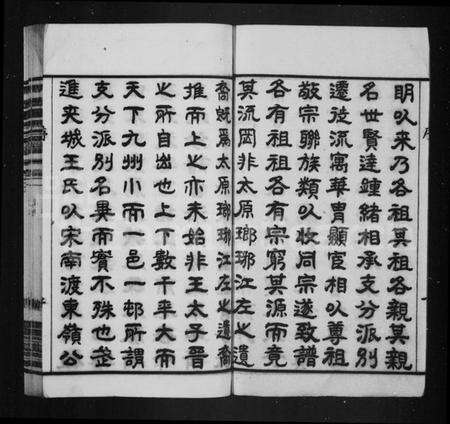 明以來乃各祖其祖各親其親
名世賢達踵緒相承支分派別
遷徙流寓華冑顯宦相以尊祖
敬宗聯族類以收同宗遂致譜
各有祖祖各有宗窮其源而竟
其流罔非太原瑯琊江左之遺
裔就爲太原瑯琊江左之遺裔
推而上之亦未始非王太子晉
之所自出也上下數千年大而
天下九州小而一邑一邨所謂
支分派別名異而實不殊也武
進夾城王氏以宋南渡東嶺公